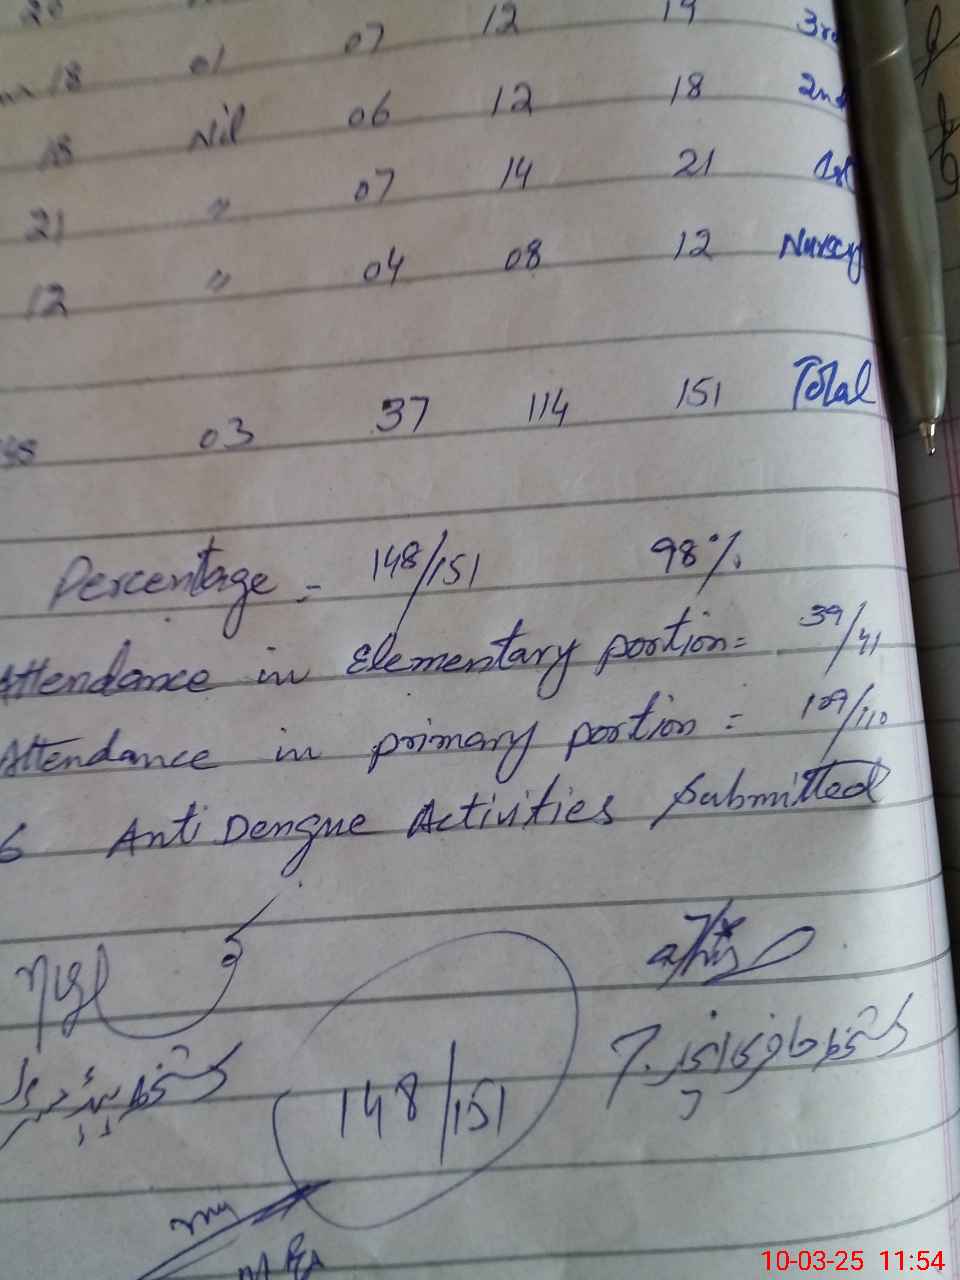 18 01 07 12 19 3rd
18 Nil 06 12 18 2nd
21 " 07 14 21 1st
12 " 04 08 12 Nursery
03 37 114 151 Total
Percentage = 148/151 98%
Attendance in Elementary portion = 39/41
Attendance in primary portion = 109/110
6 Anti Dengue Activities Submitted
148/151
10-03-25 11:54